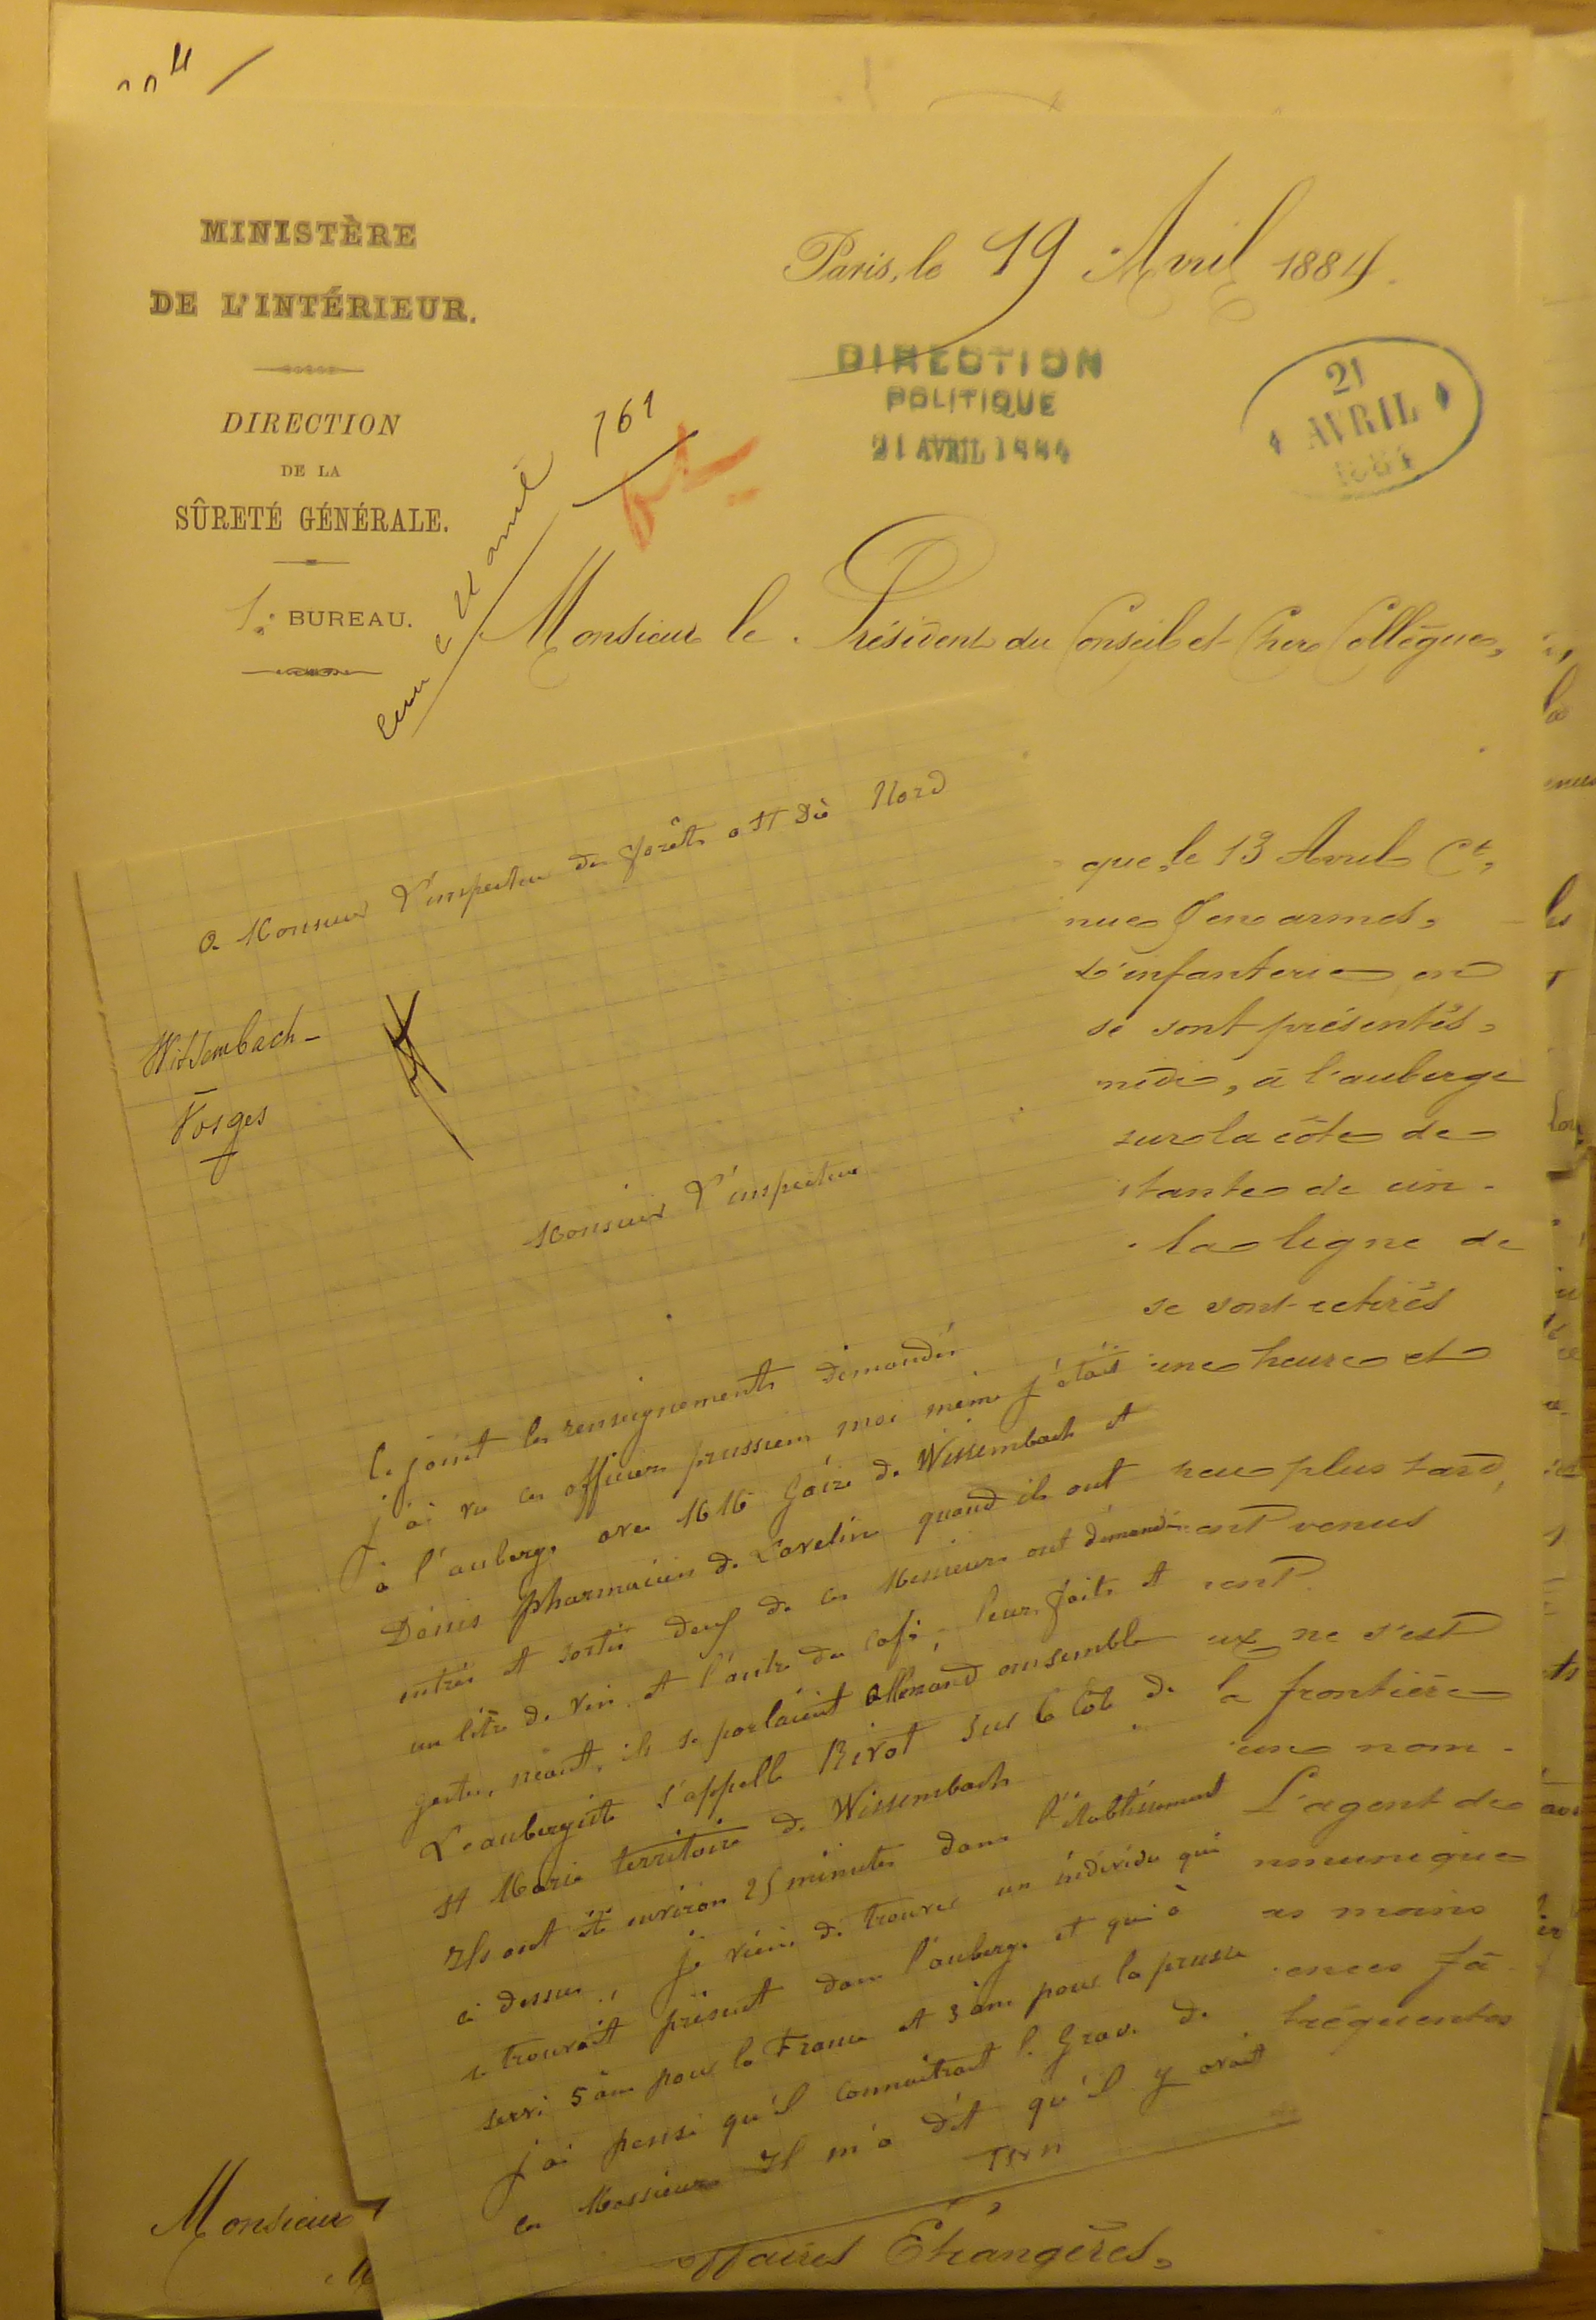 MINISTÈRE
DE L'INTÉRIEUR.
DIRECTION
DE LA
SÛRETÉ GÉNÉRALE.
1er BUREAU.
Paris, le 19 Avril 1884.
DIRECTION
POLITIQUE
21 AVRIL 1884
21
AVRIL
1884
161
Monsieur le Président du Conseil et Cher Collègue,
que, le 13 Avril Ct,
nue Gendarmes,
d'infanterie en
se sont présentés,
midi, à l'auberge
sur la côte de
stante de cin-
la ligne de
se sont retirés
une heure et
peu plus tard,
ont venus
ux ne s'est
la frontière
une nom-
L'agent de
mmunique
as moins
ences fâ-
fréquentes
a Monsieur l'inspecteur des forêts a St Dié Nord
Wissembach-
Vosges
Monsieur l'inspecteur
Ci joint les renseignements demandés
j'ai vu ces officiers prussiens moi même j'étais
à l'auberge avec MM Gaire de Wissembach et
Denis pharmacien de Lavelin quand ils ont
entrés et sortis deux de ces Messieurs ont demandé
un litre de vin et l'autre du café, leurs faits et
gestes, néant, ils se parlaient allemand ensemble
L'aubergiste s'appelle Birot sur la côte de
St Marie territoire de Wissembach
Ils ont été environ 25 minutes dans l'établissement
ci dessus, je viens de trouver un individu qui
se trouvait présent dans l'auberge et qui a
servi 5 ans pour la France et 3 ans pour la prusse
j'ai pensé qu'il connaitrait le Grade de
ces Messieurs Il m'a dit qu'il y avait
TSVP
Monsieur
ffaires Étrangères,